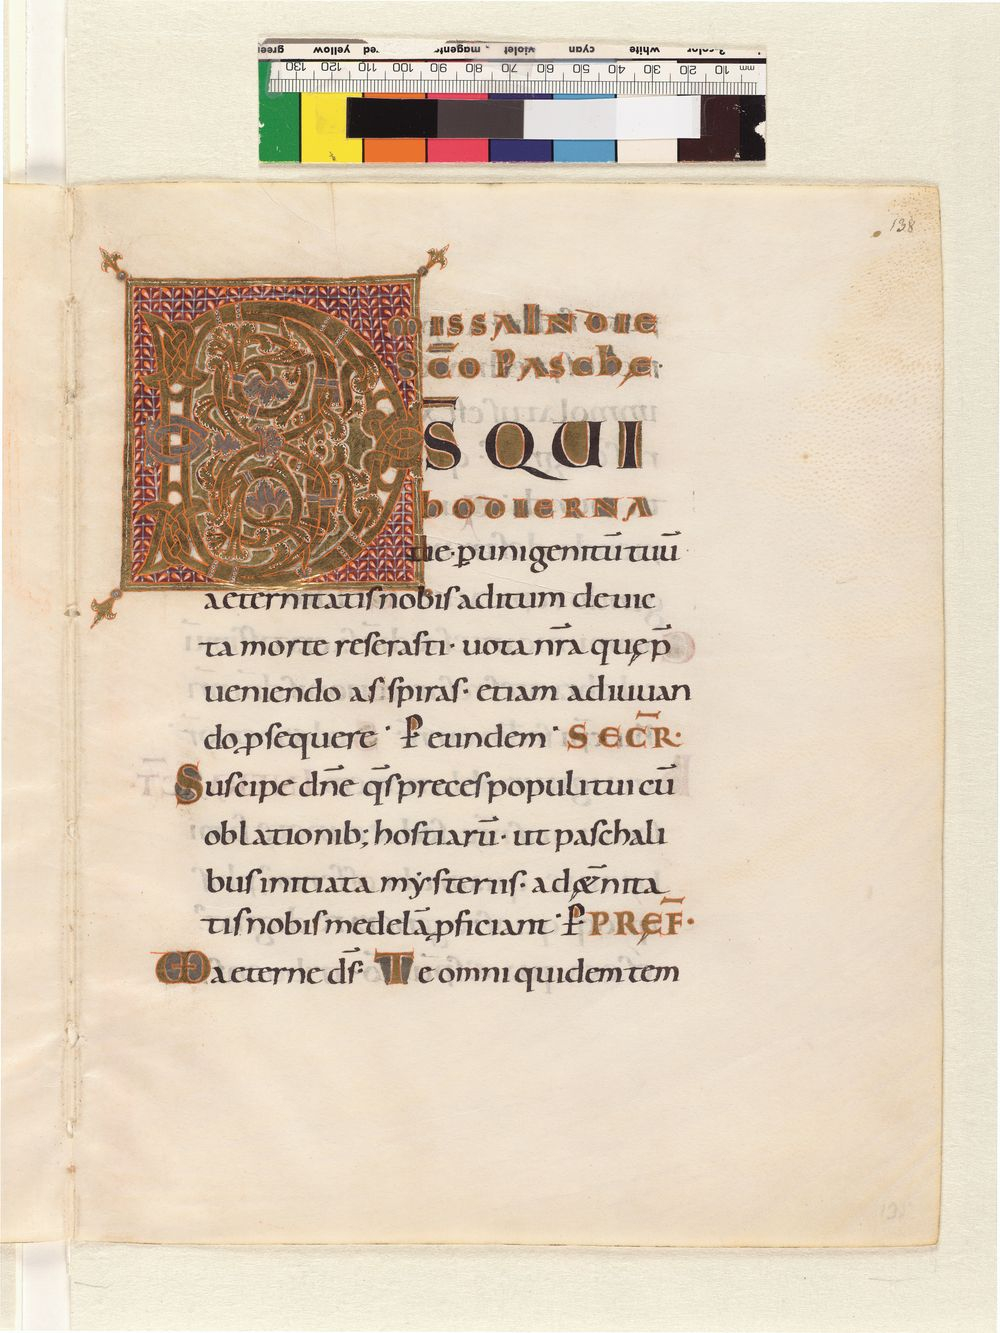 138
MISSA IN DIE
SC̄O PASCHĘ·
D̄S QUI
hODIERNA
die· ꝑ unigenitū tuū
aeternitatis nobis aditum deuic
ta morte reserasti· uota nr̄a quę p̄
ueniendo asspiras· etiam adiuuan
do ꝓsequere· P̱ eundem· SECR̄·
Suscipe dn̄e q̄s preces populi tui cū
oblationib; hostiarū· ut paschali
bus initiata mẏsteriis· ad ęt̄nita
tis nobis medelā ꝓficiant· P̱ PREF̄·
VD aeterne ds̄· Te omni quidem tem